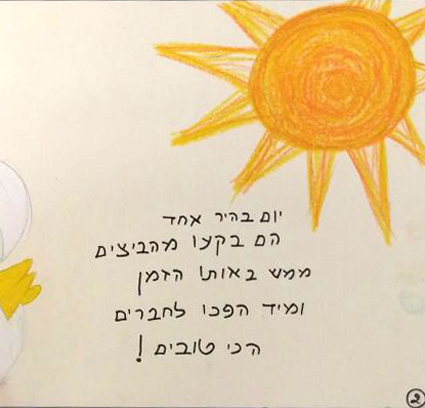 יום בהיר אחד
הם בקעו מהביצים
ממש באותו הזמן
ומיד הפכו לחברים
הכי טובים!
2